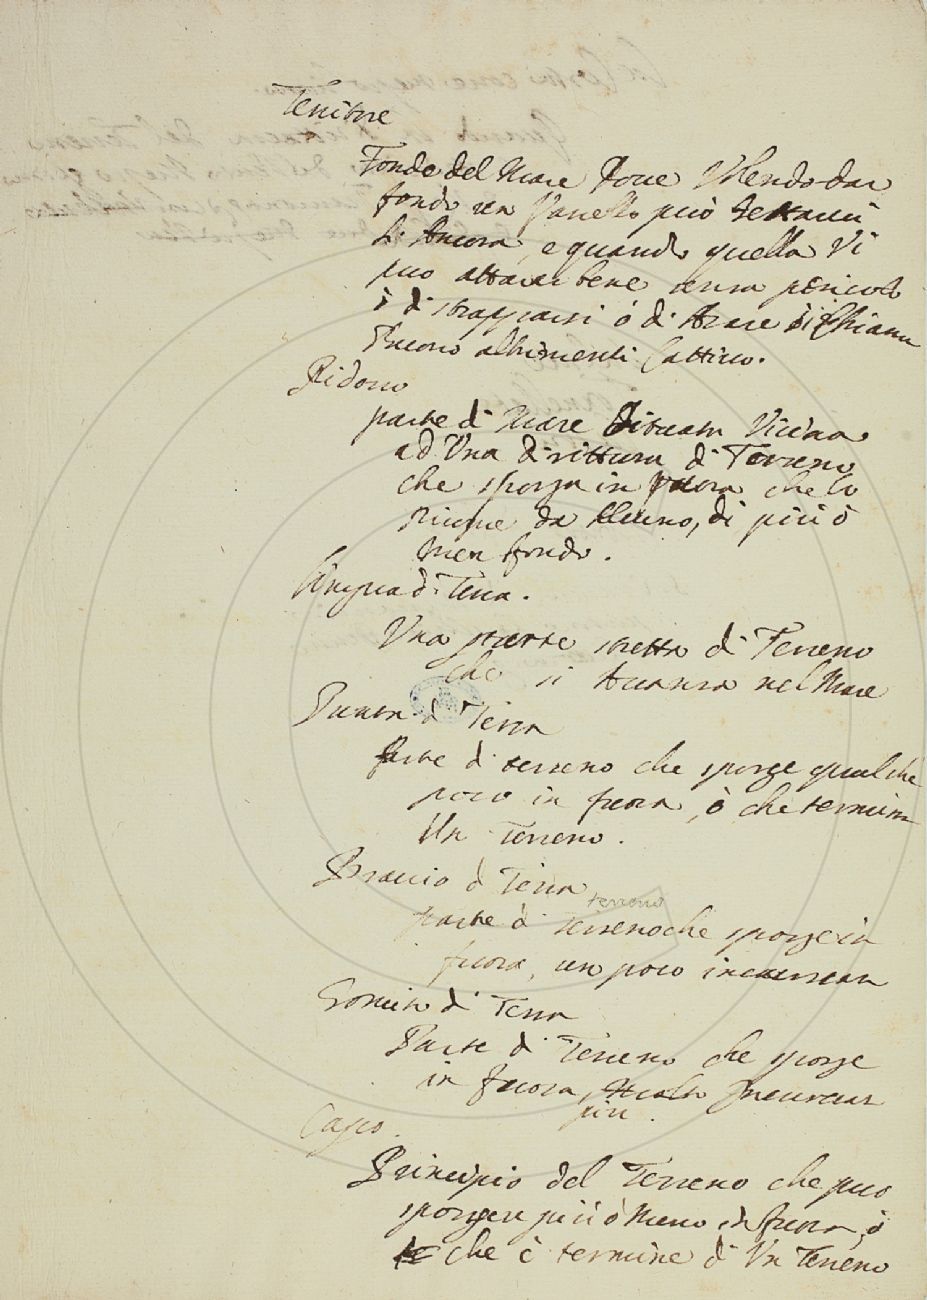 Tenitore
Fondo del Mare Dove Volendo dar
fondo un Vasello può
L'Ancora, e quando quella Vi
può attacar bene senza pericolo
ò di strapparsi ò di Arare si Chiama
Buono altrimenti Cattivo.
Ridosso
parte di Mare Situata Vicina
ad Una dirittura di Terreno
che sporga in fuora che lo
da di più ò
men fondo.
Lingua di Terra.
Una parte stretta di Terreno
che si Avanza nel Mare
Punta di Terra
Parte di terreno che sporge qualche
poco in fuora, ò che termina
Un Terreno.
Braccio di Terra
terreno
parte di terreno che sporge in
fuora, un poco incurvata
Gomito di Terra
Parte di Terreno che sporge
in fuora, Incurvata
più.
Capo.
Principio del Terreno che può
sporgere più ò Meno in fuora, ò
che è termine di Un Terreno